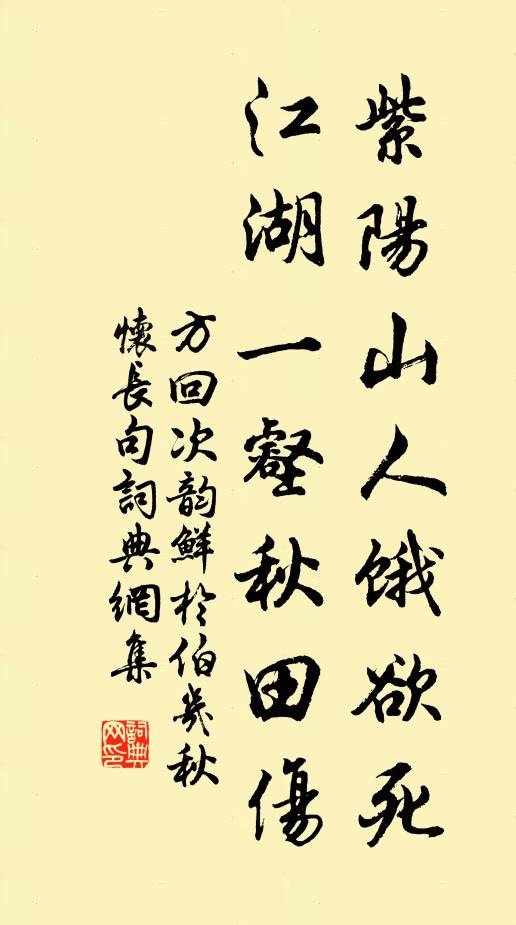 紫陽山人餓欲死
江湖一壑秋田傷
方回次韵鮮於伯幾秋
懷長句詞典網集
詞典
网印